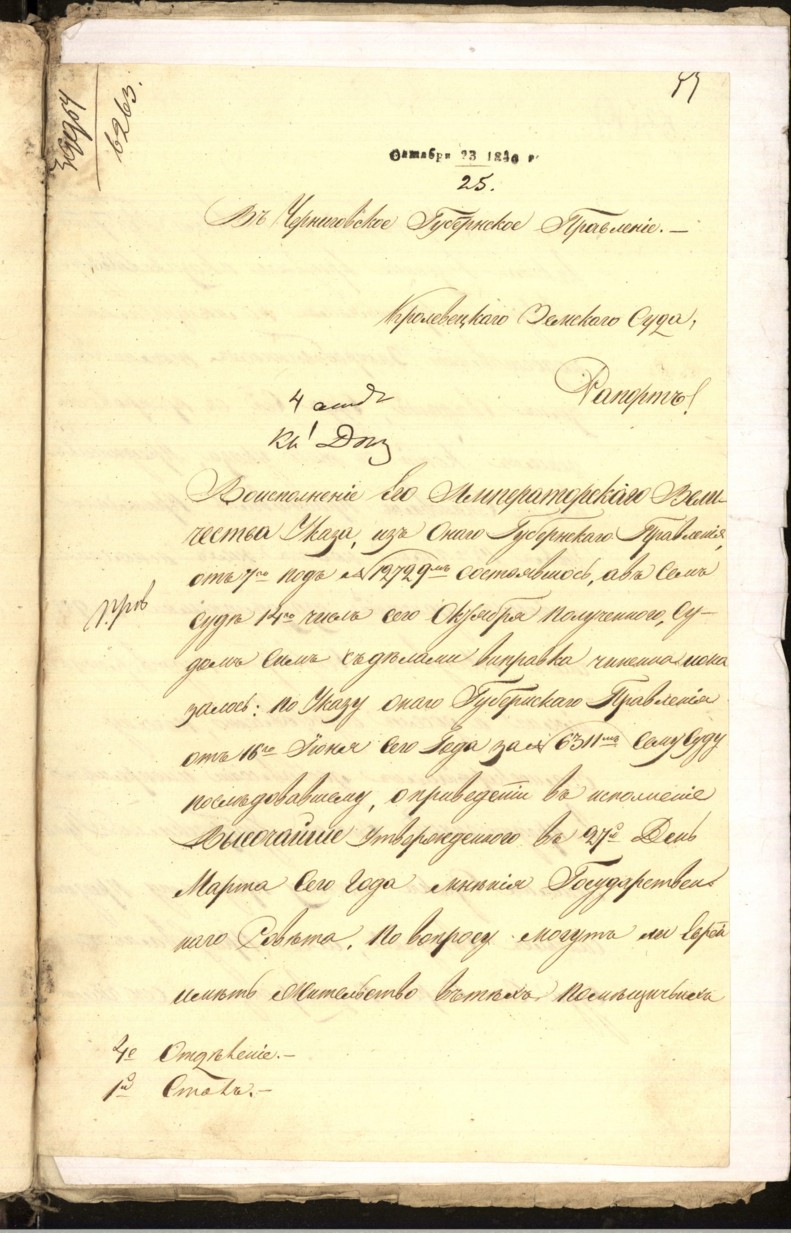 6263.
Октября 23 1840 г
25.
Въ Черниговское Губернское Правленіе. —
Кролевецкаго Земскаго Суда,
Рапортъ!
4
Воисполненіе Его Императорскаго Вели-
чества Указа, изъ Онаго Губернскаго Правленія,
отъ 7го подъ № 12729мъ состоявшось, авъ Семъ
судѣ 14го числа сего Октября полученного, Су-
домъ Симъ съ дѣлами виправка чиненна ипока
залось: по Указу онаго Губернскаго Правленія
отъ 16го Іюня Сего Года за № 6311мъ Сему Суду
послѣдовавшему, оприведеніи въ исполненіе
Высочайше Утвержденного въ 27й День
Марта Сего Года мнѣнія Государствен
наго Совѣта, по вопросу могутъ ли Евреи
имѣть Жительство вътѣхъ помѣщичьихъ
4е Отдѣленіе. —
1й Столъ. —